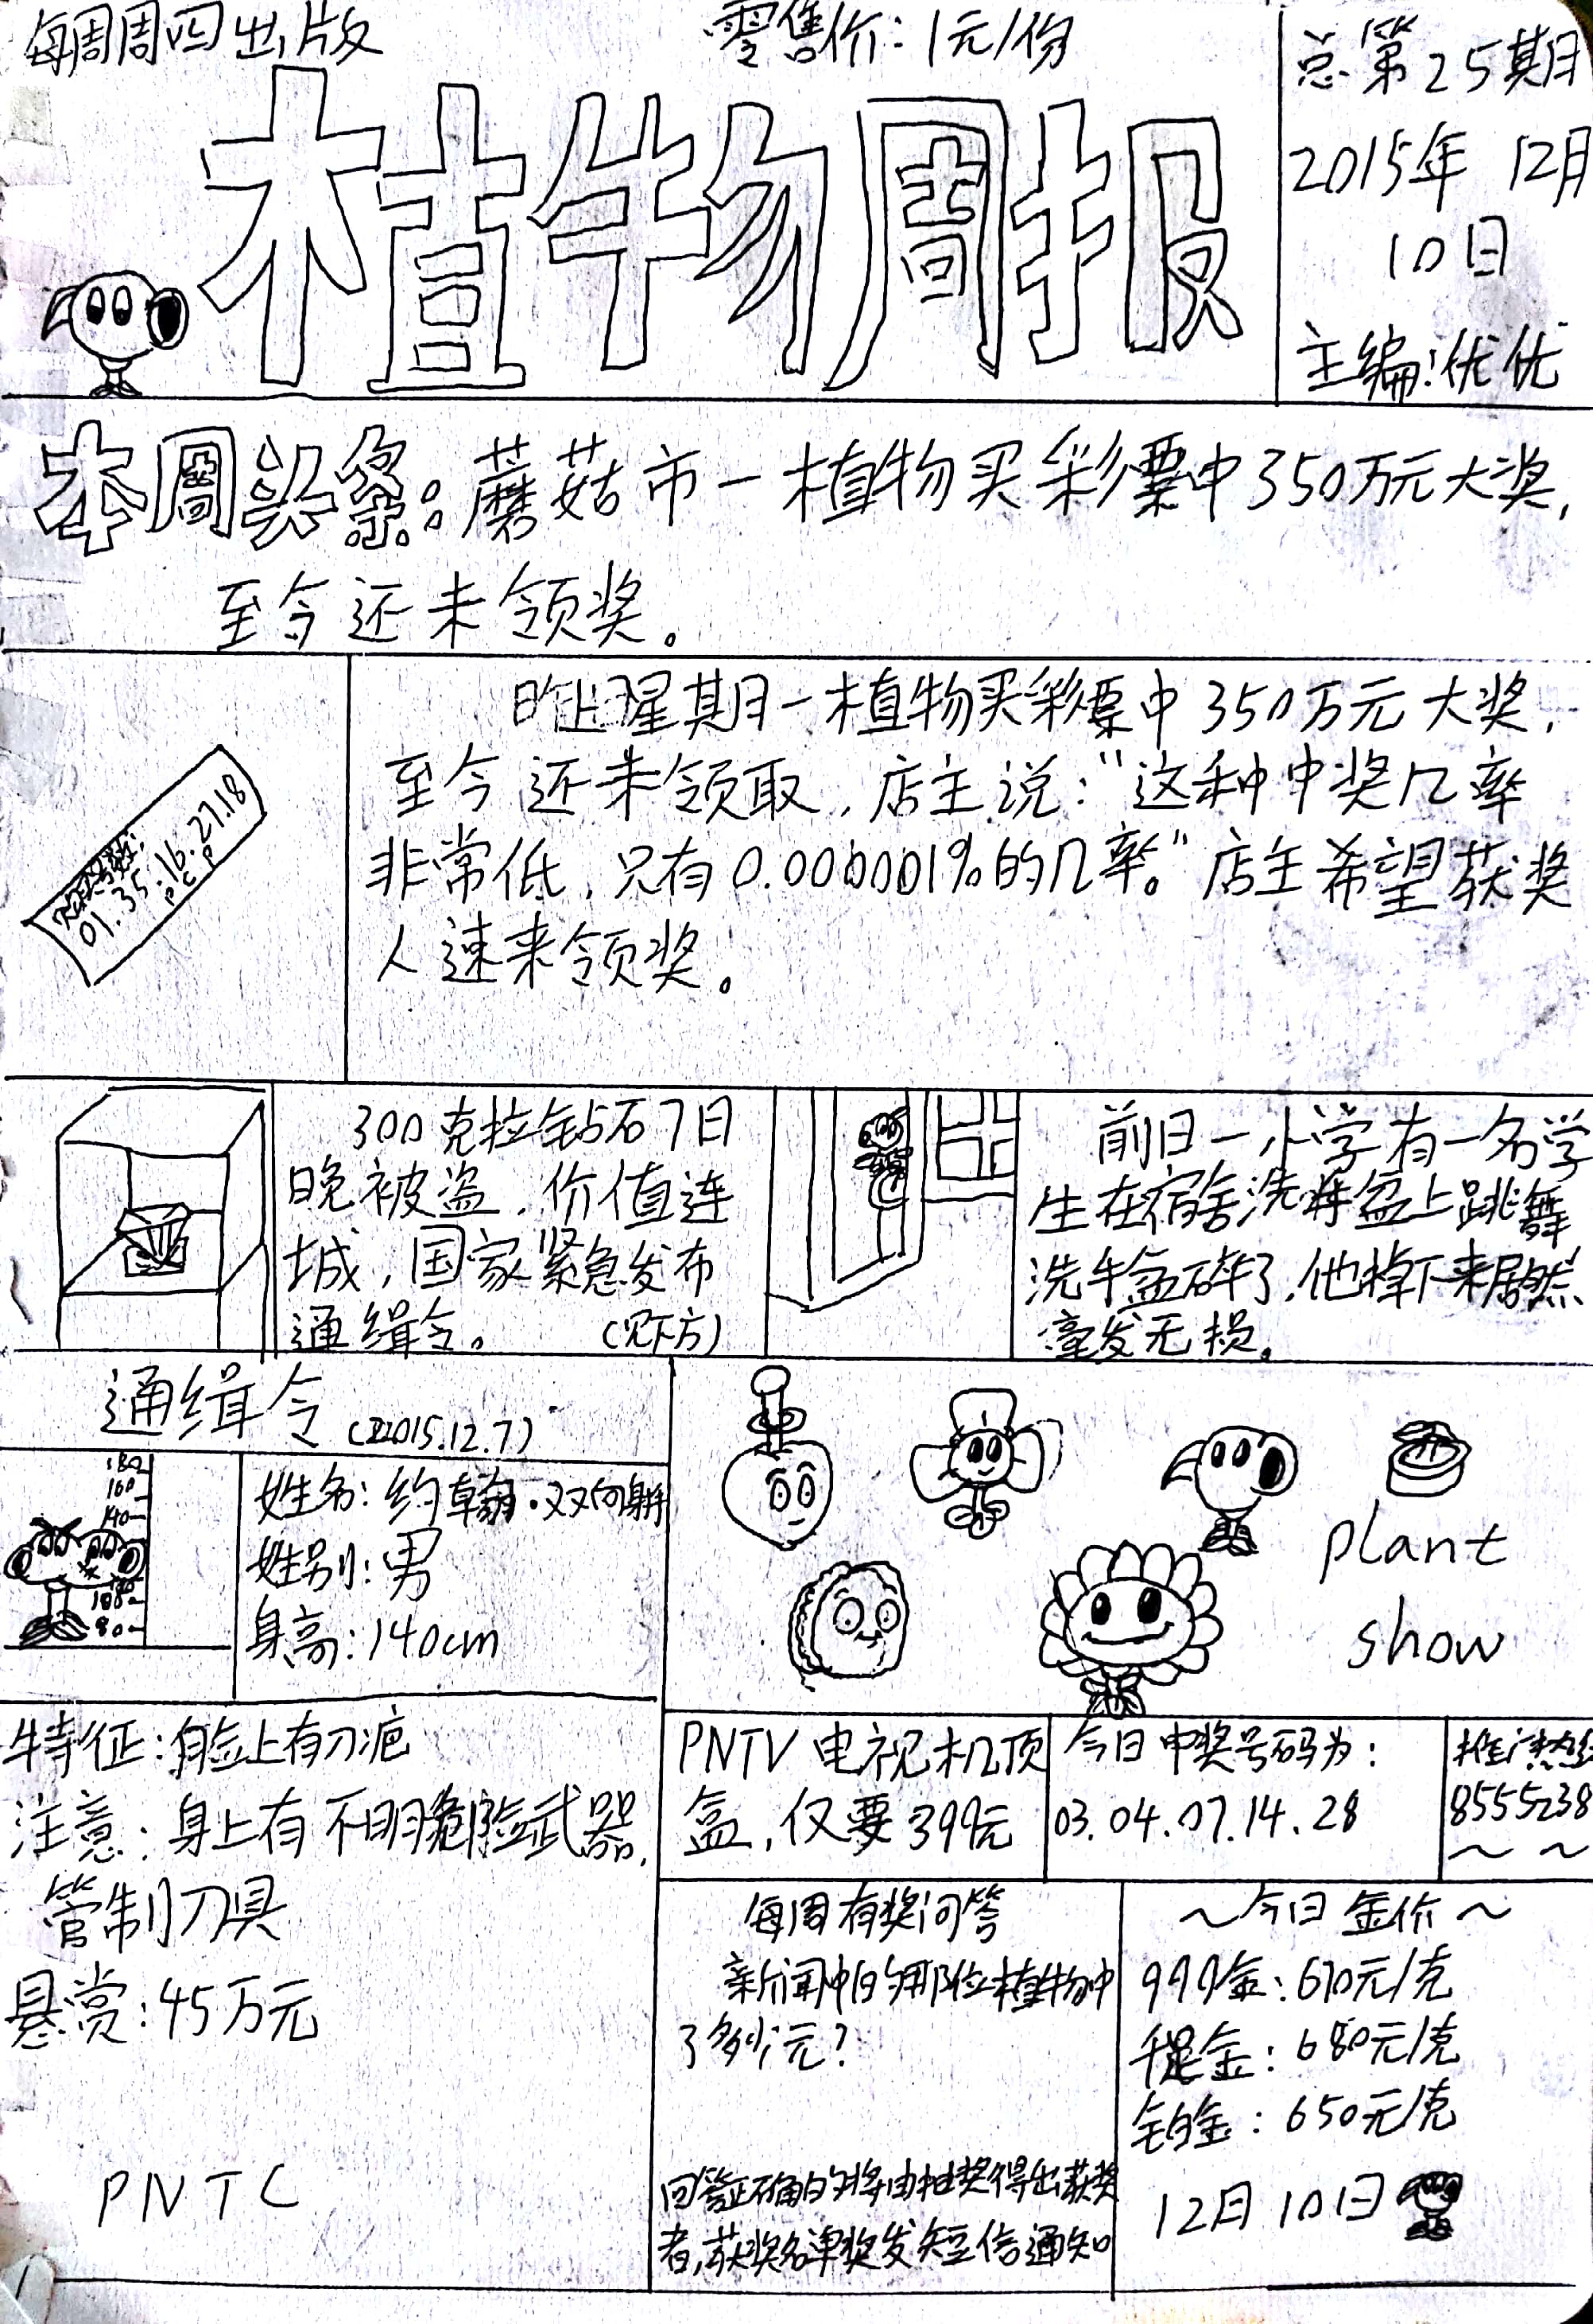 每周周四出版
零售价:1元/份
总第25期
2015年 12月
10日
主编:优优
植物周报
本周头条:蘑菇市一植物买彩票中350万元大奖,
至今还未领奖。
星期一植物买彩票中350万元大奖,
至今还未领取,店主说:“这种中奖几率
非常低,只有0.0000001%的几率。”店主希望获奖
人速来领奖。
01.35.16.27.18
P C P
300克拉钻石7日
晚被盗,价值连
城,国家紧急发布
通缉令。 (见下方)
前日一小学有一名学
生在宿舍洗 盆上跳舞
洗手盆碎了,他掉下来居然
毫发无损。
通缉令(2015.12.7)
180
160
140
100
80
姓名:约翰·双向射手
姓别:男
身高:140cm
特征:脸上有刀疤
注意:身上有不明危险武器,
管制刀具
悬赏:45万元
PNTC
plant
show
PNTV电视机顶
盒,仅要399元
今日中奖号码为:
03.04.07.14.28
推广热线
8555238
~ ~
每周有奖问答
新闻中的那位植物中
了多少元?
回答正确的将由抽奖得出获奖
者,获奖名单奖发短信通知
~今日金价~
999金:670元/克
千足金:680元/克
铂金:650元/克
12月10日